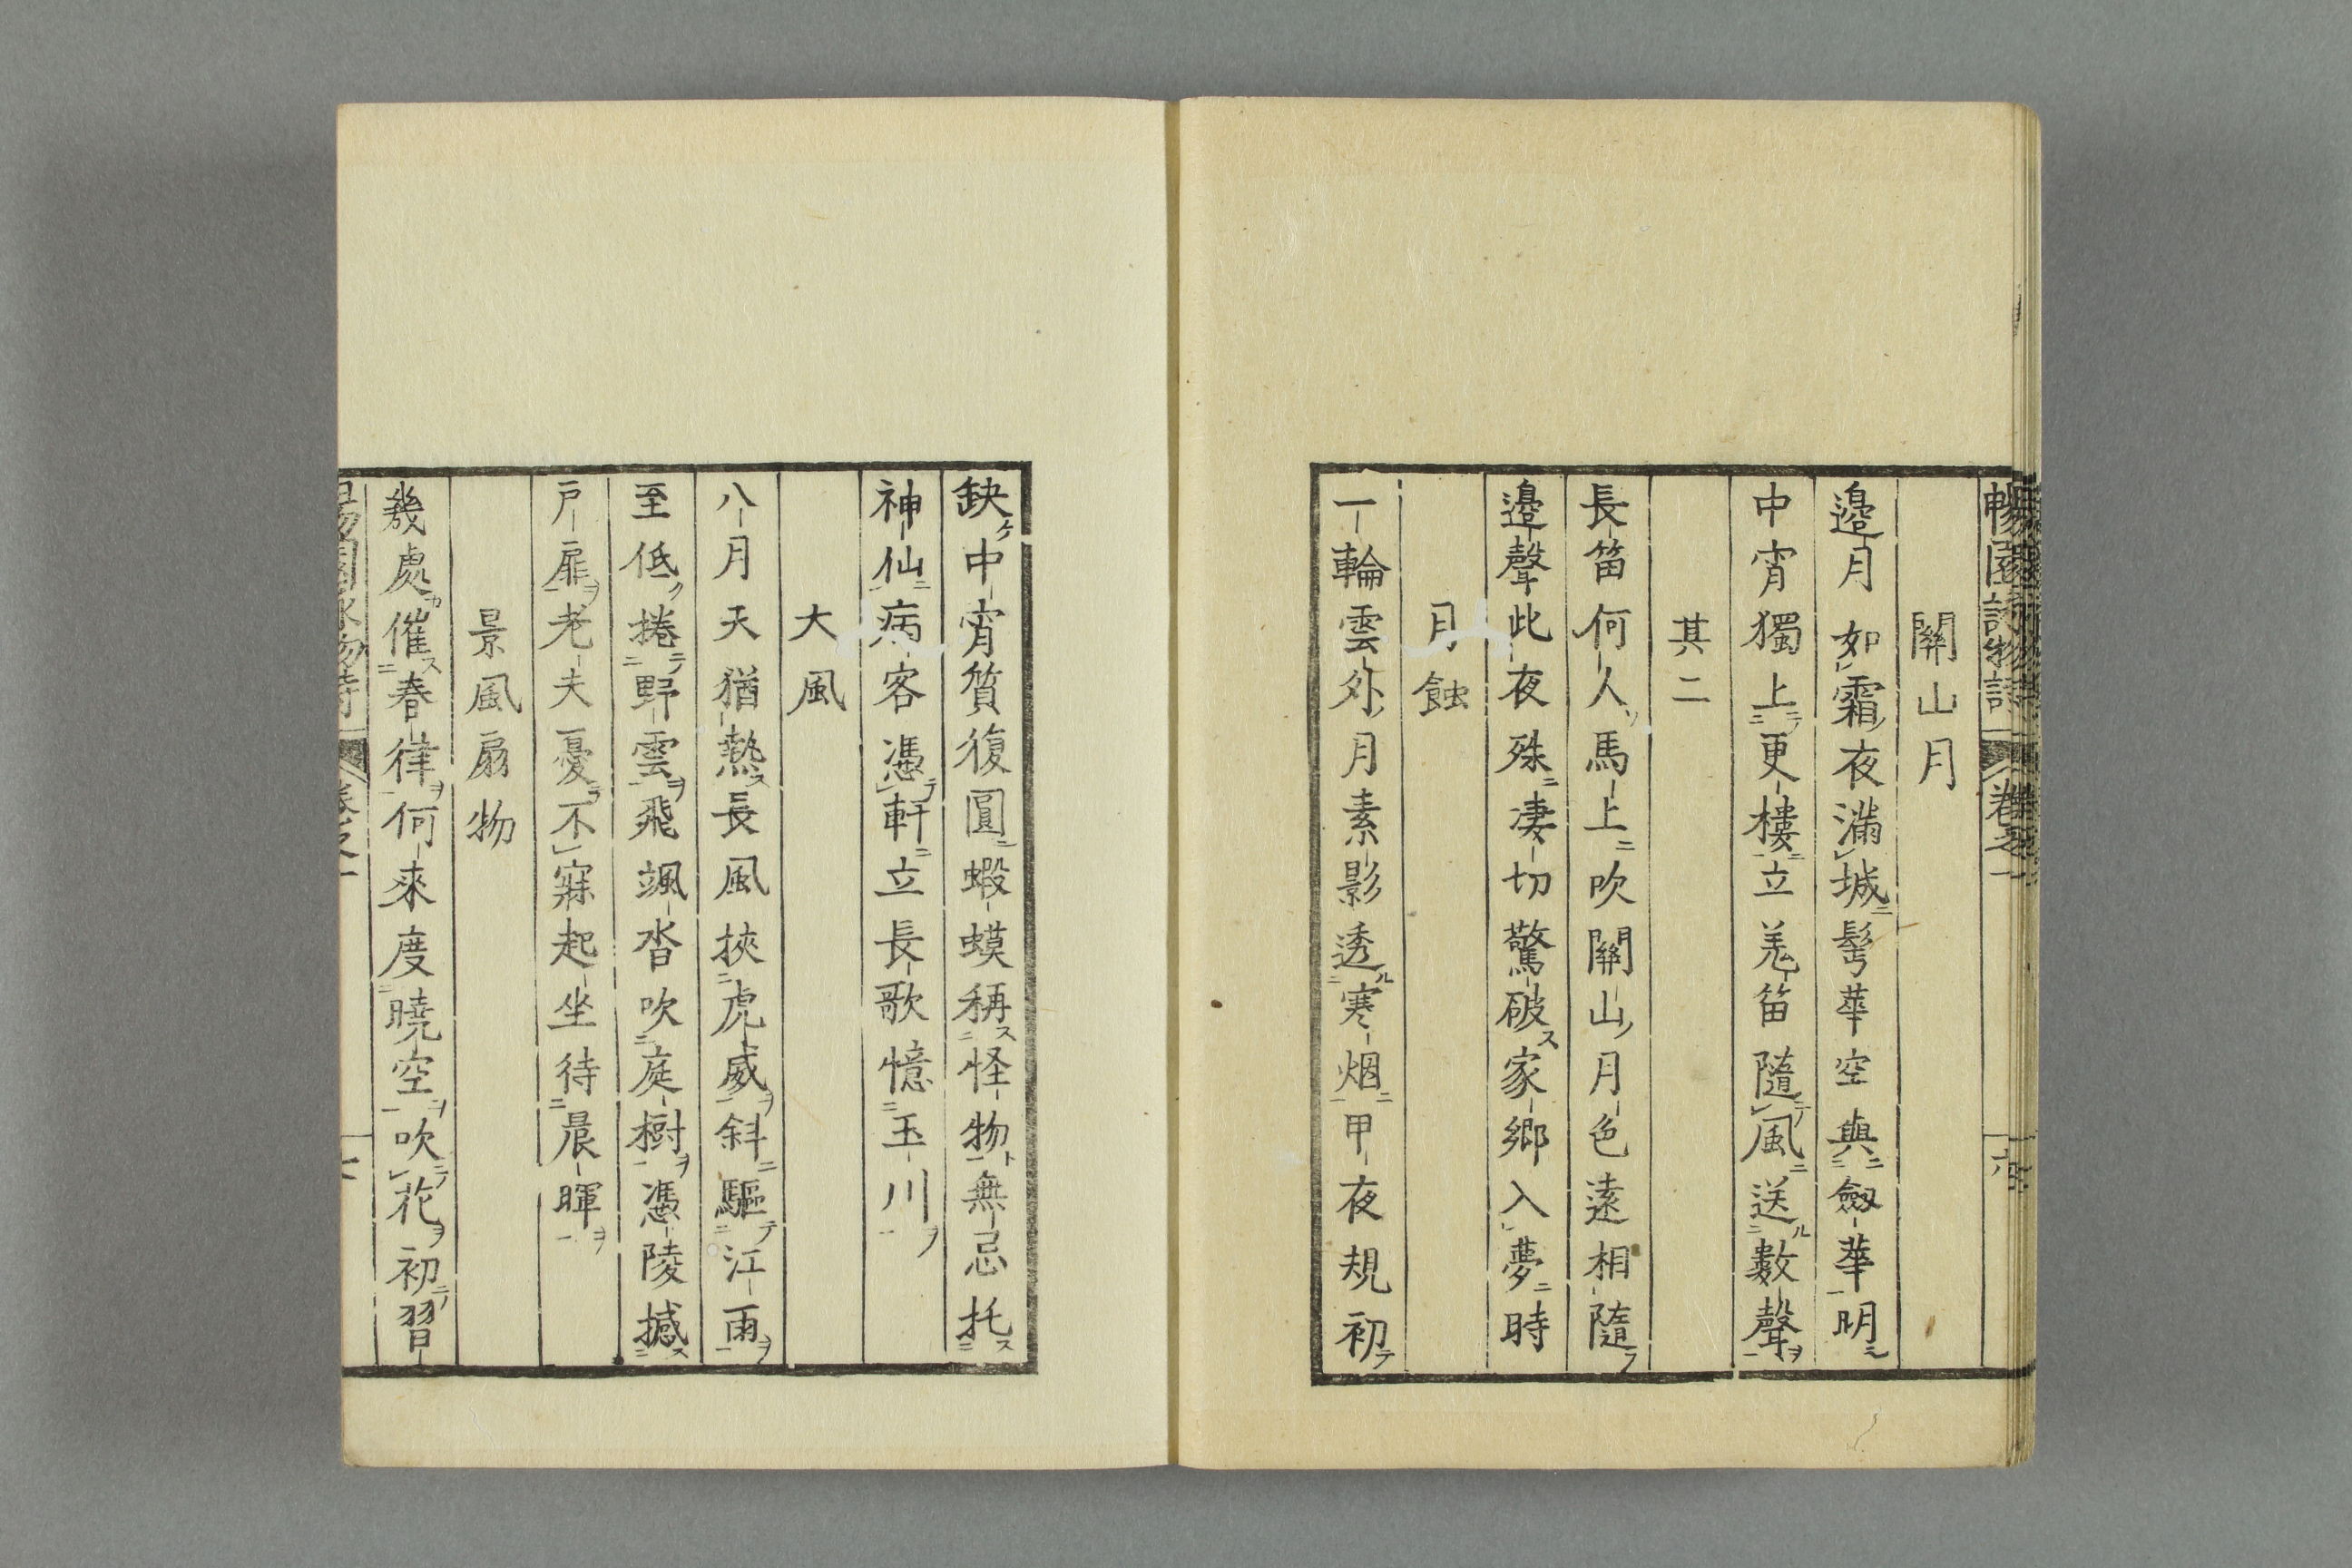 暢園詠物詩 卷之一 六
關山月
邉月如霜夜滿城髩華空與劔華明
中宵獨上更樓立羗笛隨風送數聲
其二
長笛何人馬上吹關山月色遠相隨
邉聲此夜殊凄切驚破家鄉入夢時
月蝕
一輪雲外月素影透寒烟甲夜規初
缺中宵質復圓蝦蟆稱怪物無忌托
神仙病客憑軒立長歌憶玉川
大風
八月天猶熱長風挾虎威斜驅江雨
至低捲野雲飛颯沓吹庭樹憑陵撼
戸扉老夫憂不寐起坐待晨暉
景風扇物
幾處催春律何來度曉空吹花初習